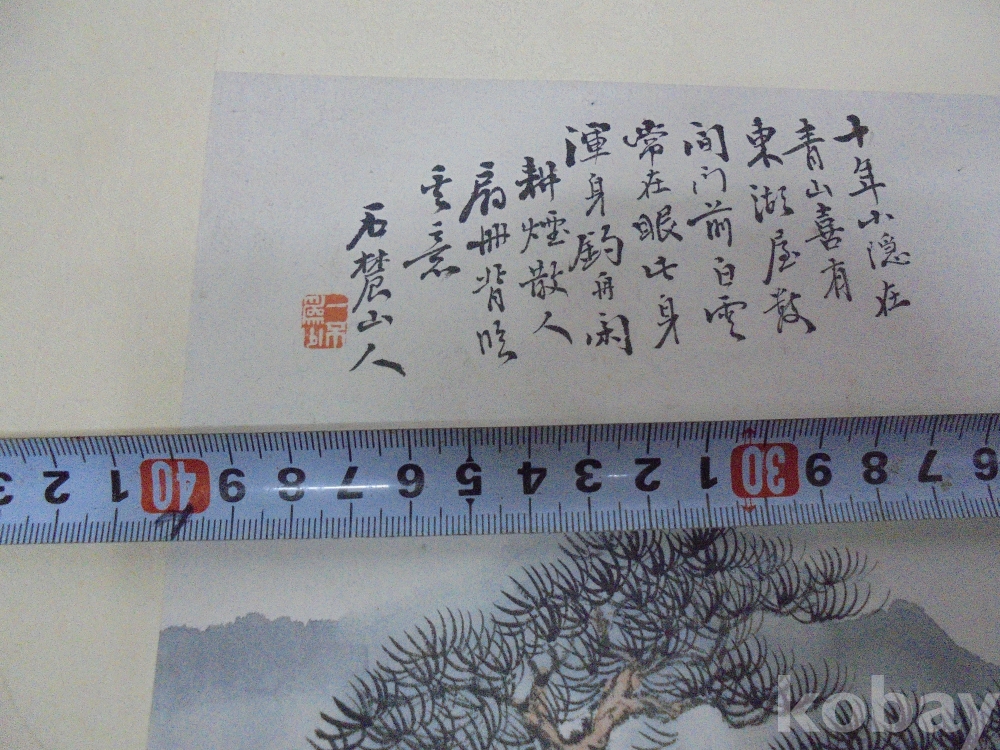 十年小隐在
青山喜有
東湖屋数
间门前白雲
常在眼此身
渾身钓舟闲
耕煙散人
扇冊背临
其意
石農山人
3 2 1 40 9 8 7 6 5 4 3 2 1 30 9 8 7 6
kobay